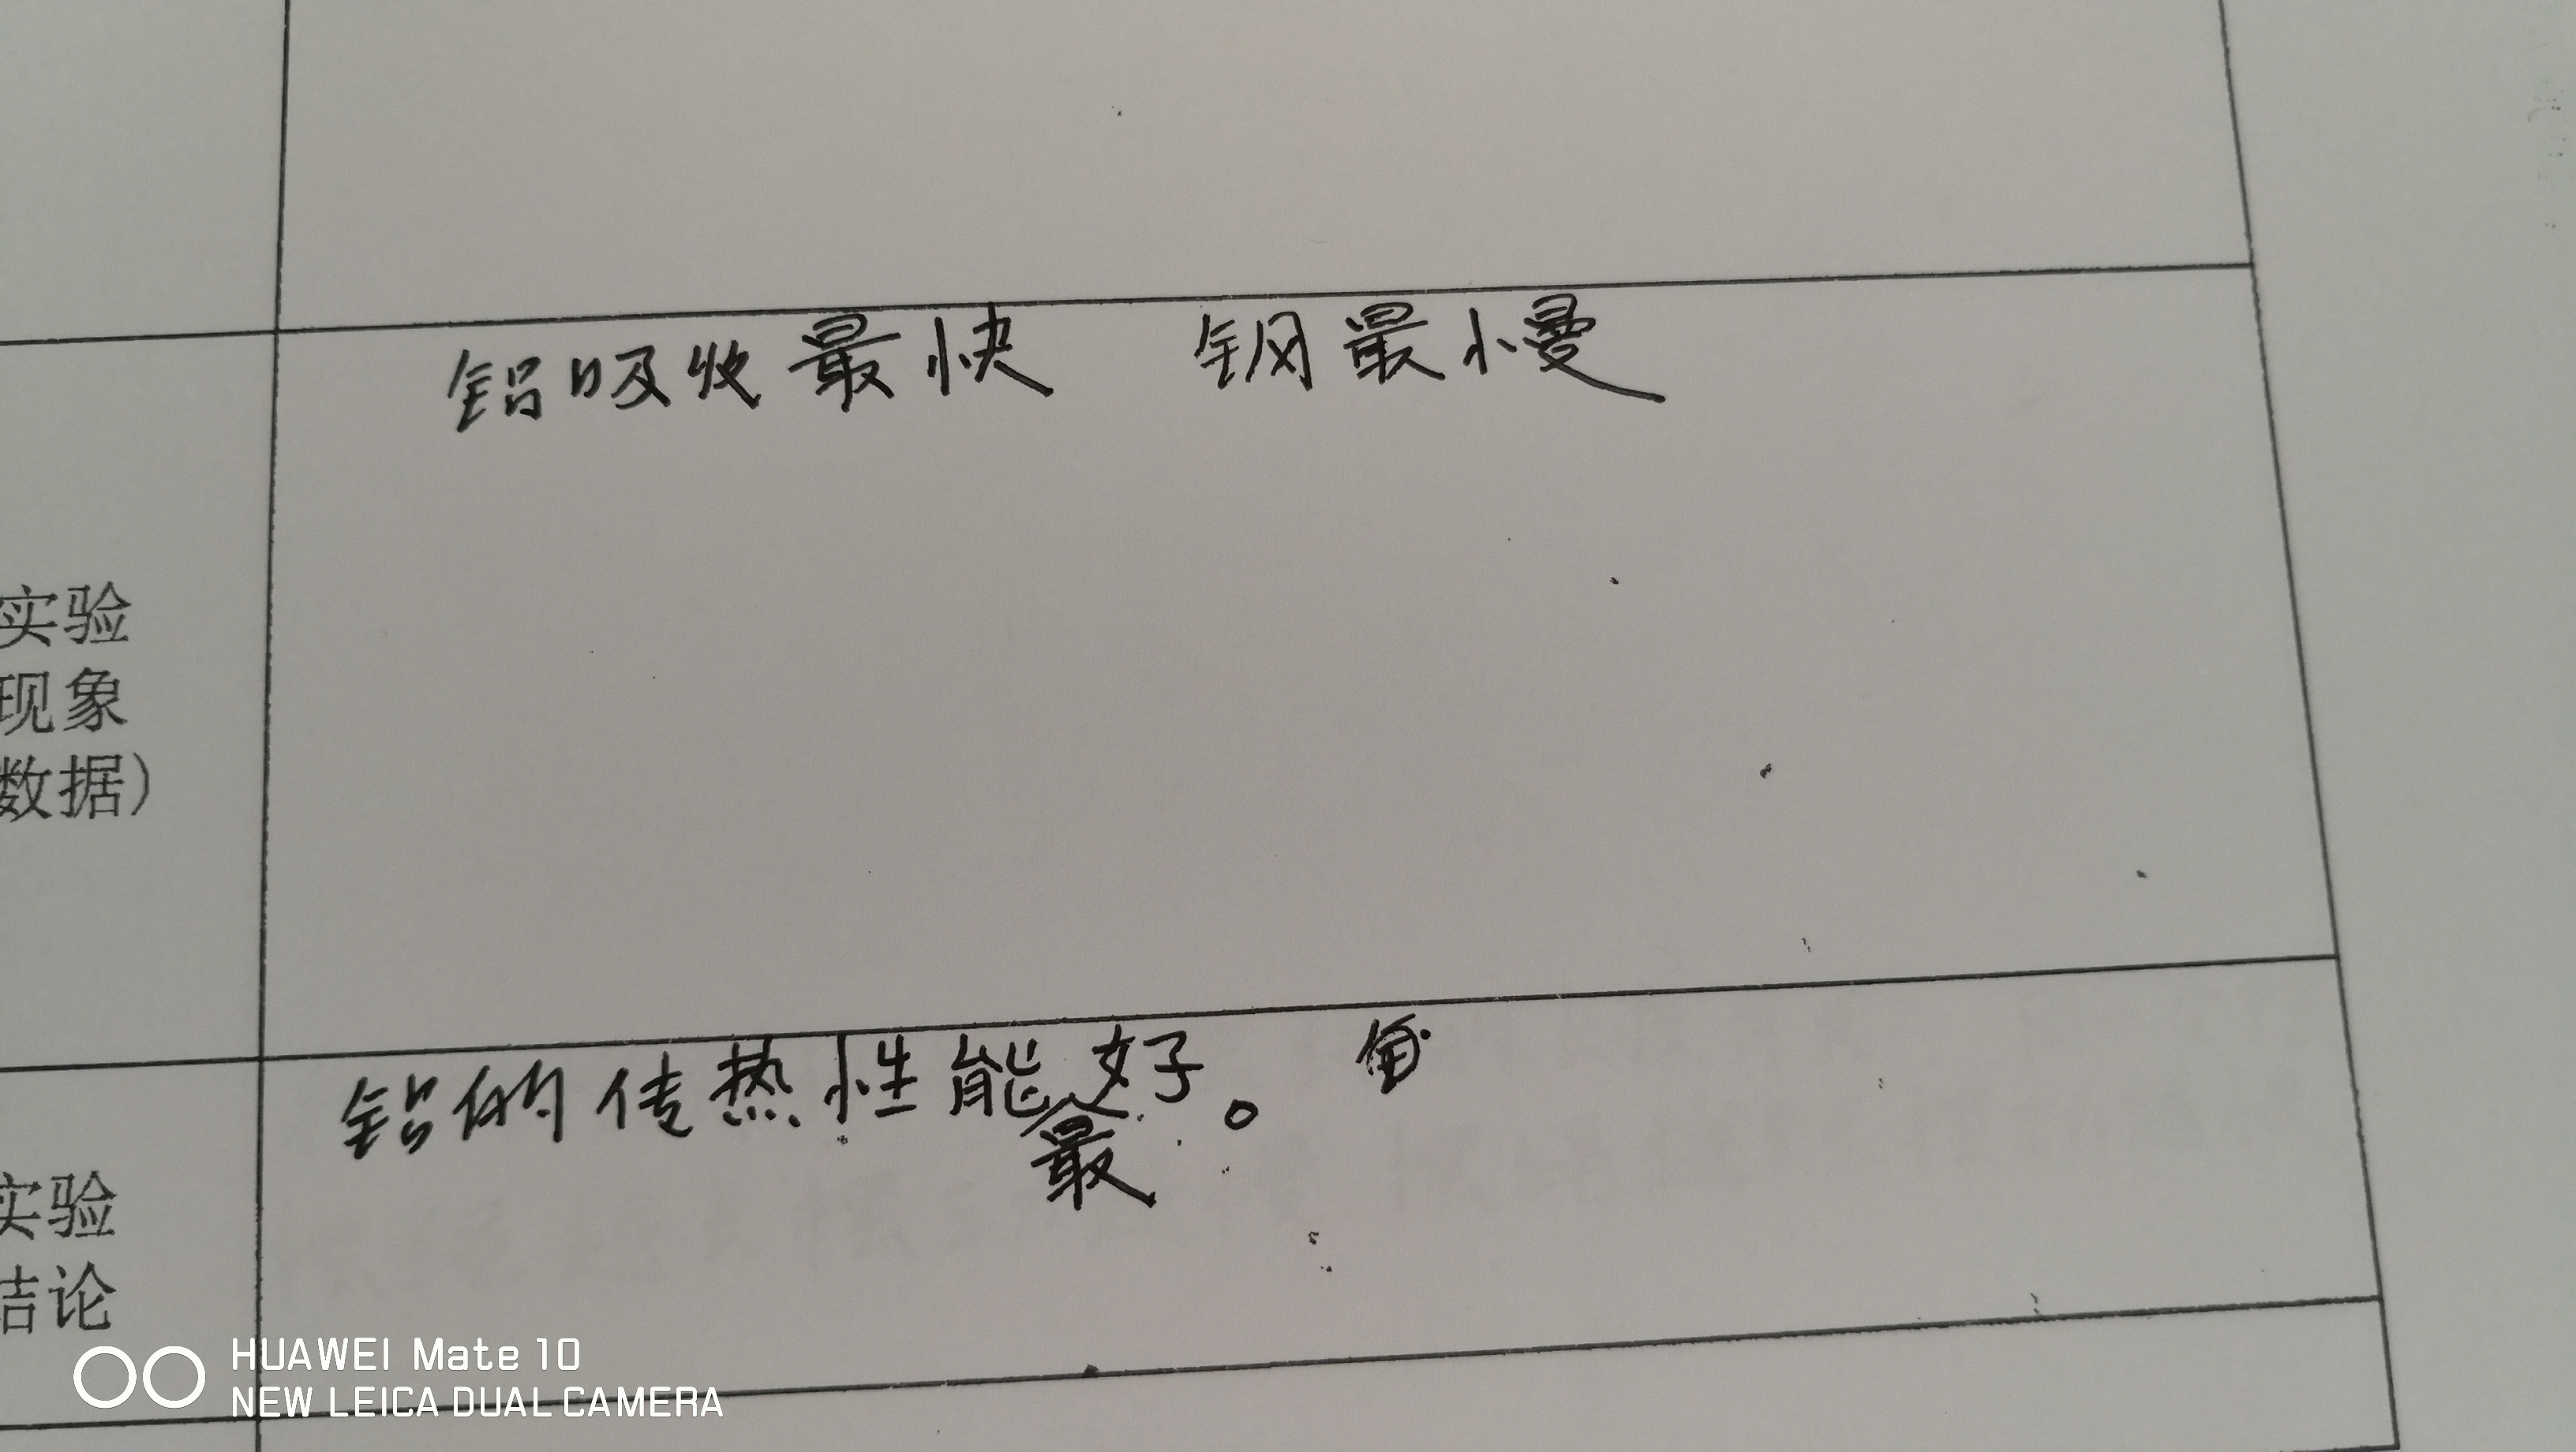 铝吸收最快 钢最慢
实验
现象
数据）
铝的传热性能最好。
实验
结论
HUAWEI Mate 10
NEW LEICA DUAL CAMERA